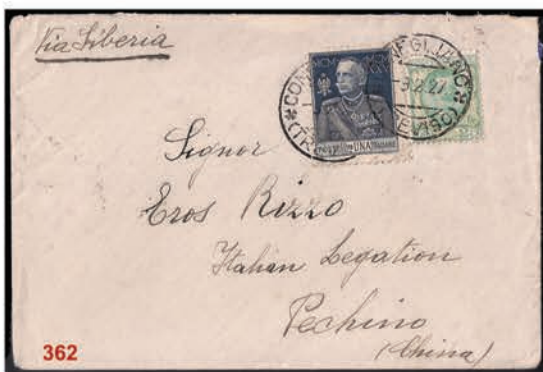 Via Siberia
CONEGLIANO
(TREVISO)
-9.2.27
UNA
Signor
Eros Rizzo
Italian Legation
Pechino
(China)
362